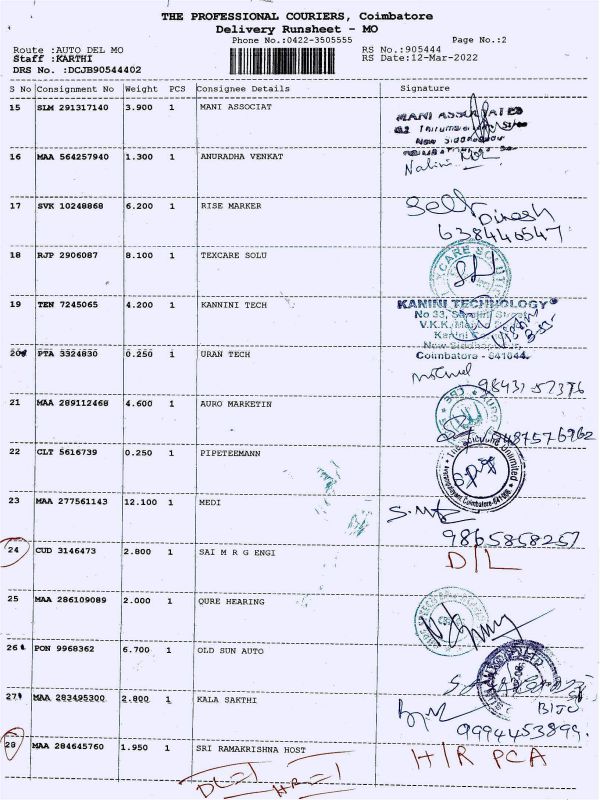 THE PROFESSIONAL COURIERS, Coimbatore
Delivery Runsheet - MO
Phone No.:0422-3505555 Page No.:2
Route :AUTO DEL MO RS No.:905444
Staff :KARTHI RS Date:12-Mar-2022
DRS No. :DCJB90544402
S No Consignment No Weight PCS Consignee Details Signature
15 SLM 291317140 3.900 1 MANI ASSOCIAT
MANI ASSOCIATES
16 MAA 564257940 1.300 1 ANURADHA VENKAT
Nalini
17 SVK 10248868 6.200 1 RISE MARKER
Self Dinesh
638446547
18 RJP 2906087 8.100 1 TEXCARE SOLU
19 TEN 7245065 4.200 1 KANNINI TECH
KANINI TECHNOLOGY
No 33, Sarojini Street
V.K.K.
New Siddhapudur,
Coimbatore - 641044.
20 PTA 3324830 0.250 1 URAN TECH
9843157376
21 MAA 289112468 4.600 1 AURO MARKETIN
9487576962
22 CLT 5616739 0.250 1 PIPETEEMANN
23 MAA 277561143 12.100 1 MEDI
9865858257
24 CUD 3146473 2.800 1 SAI M R G ENGI
D/L
25 MAA 286109089 2.000 1 QURE HEARING
26 PON 9968362 6.700 1 OLD SUN AUTO
27 MAA 283495300 2.800 1 KALA SAKTHI
BIJU
9994453899.
28 MAA 284645760 1.950 1 SRI RAMAKRISHNA HOST
H/R PCA
DL=1 HR=1